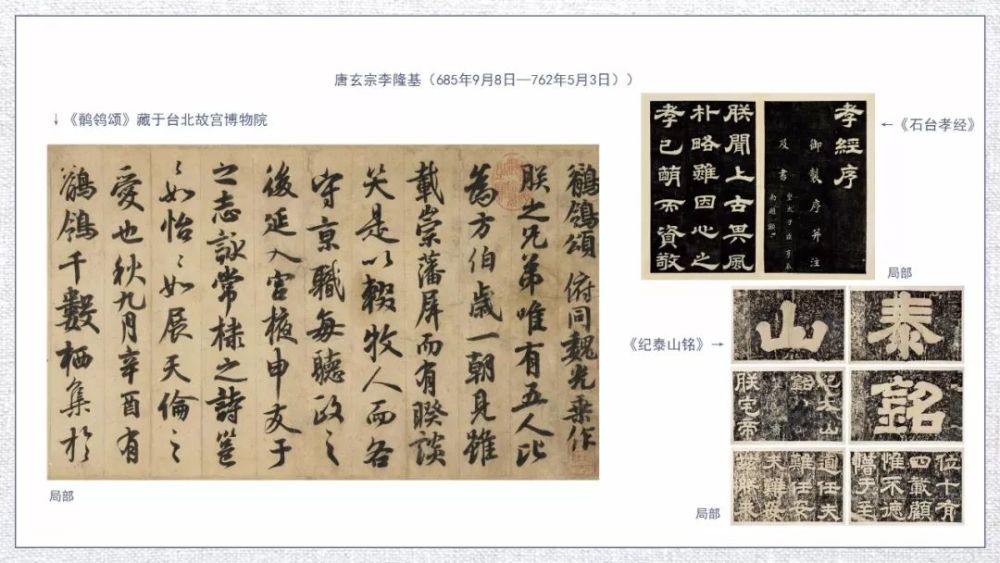 唐玄宗李隆基（685年9月8日—762年5月3日））
↓《鹡鸰颂》藏于台北故宫博物院
鶺鴒頌 俯同魏光乘作
朕之兄弟唯有五人比
為方伯歲一朝見雖
載崇藩屏而有睽談
笑是以輟牧人而各
守京職每聽政之
後延入宮掖申友于
之志詠常棣之詩邕
邕如怡怡如展天倫之
愛也秋九月辛酉有
鶺鴒千數栖集於
局部
←《石台孝经》
孝經序
御製序并注
及書
朕聞上古其風
朴略雖因心之
孝已萌而資敬
局部
《纪泰山铭》→
泰
山
銘
紀泰山
銘
朕宅帝
位十有
四載顧
惟不德
懵于至
道任夫
難任安
夫難安
局部